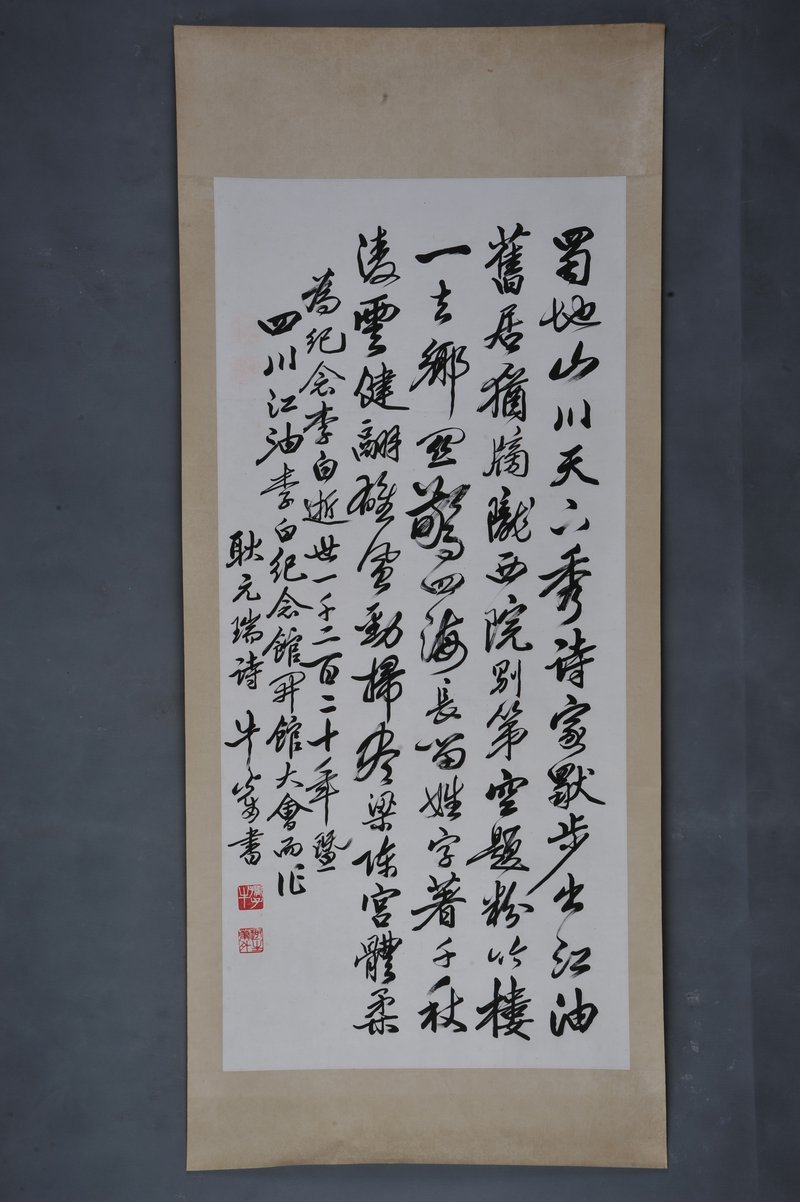 蜀地山川天下秀诗家默步出江油
舊居猶牓隴西院別第空題粉竹樓
一去鄉関驚四海長留姓字著千秋
凌雲健翮雄風勁掃盡梁陳宮體柔
為纪念李白逝世一千二百二十年暨
四川江油李白纪念館開館大會而作
耿元瑞诗 牛書